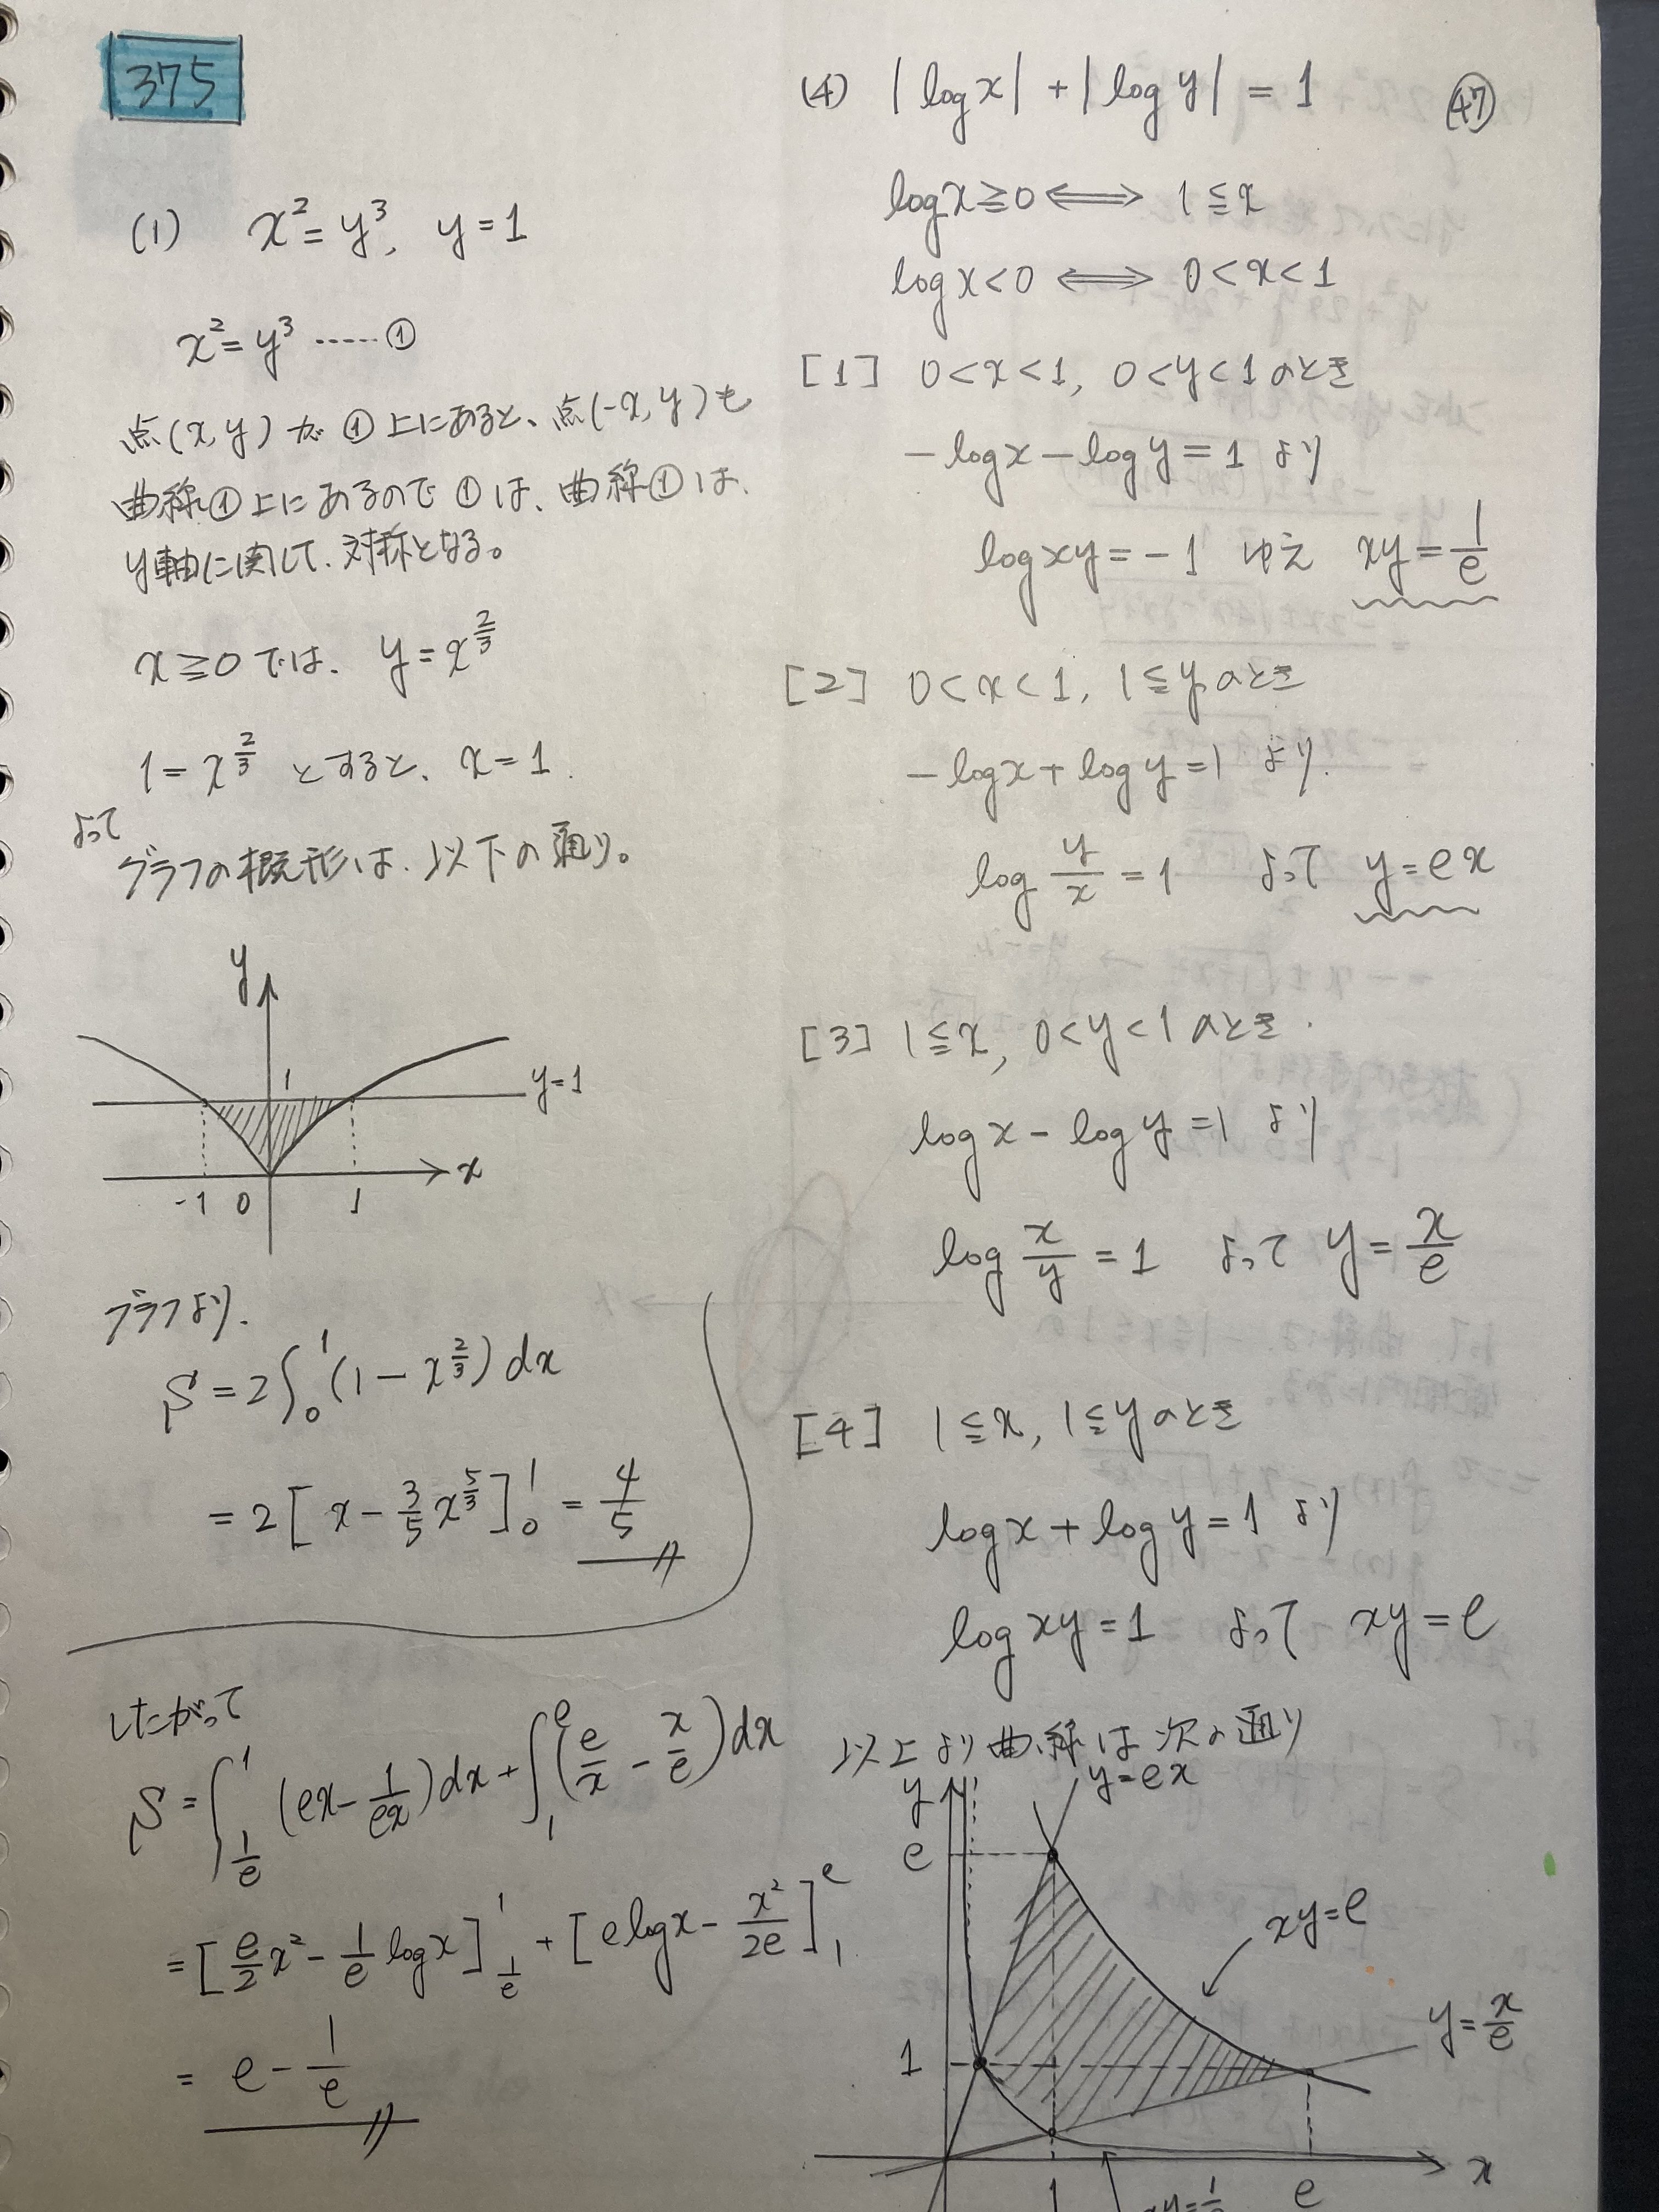 375
(1) x² = y³, y = 1
x² = y³ ‥‥‥ ①
点(x, y) が ① 上にあると、点(-x, y) も
曲線①上にあるので ①は、曲線①は、
y軸に関して、対称となる。
x ≧ 0 では、 y = x^{2/3}
1 = x^{2/3} とすると、 x = 1.
よって
グラフの概形は、以下の通り。
y
1
y=1
x
-1 0 1
グラフより、
S = 2∫₀¹ (1 - x^{2/3}) dx
= 2 [ x - 3/5 x^{5/3} ]₀¹ = 4/5
したがって
S = ∫_{1/e}^{1} (ex - 1/ex) dx + ∫_{1}^{e} (e/x - x/e) dx
= [ e/2 x² - 1/e log x ]_{1/e}^{1} + [ e log x - x²/2e ]_{1}^{e}
= e - 1/e
(4) |log x| + |log y| = 1
㊼
log x ≧ 0 ⟺ 1 ≦ x
log x < 0 ⟺ 0 < x < 1
[1] 0 < x < 1, 0 < y < 1 のとき
- log x - log y = 1 より
log xy = -1 ゆえ xy = 1/e
[2] 0 < x < 1, 1 ≦ y のとき
- log x + log y = 1 より.
log y/x = 1 よって y = ex
[3] 1 ≦ x, 0 < y < 1 のとき.
log x - log y = 1 より
log x/y = 1 よって y = x/e
[4] 1 ≦ x, 1 ≦ y のとき
log x + log y = 1 より
log xy = 1 よって xy = e
以上より曲線は次の通り
y
y = ex
e
xy = e
y = x/e
1
x
1
e